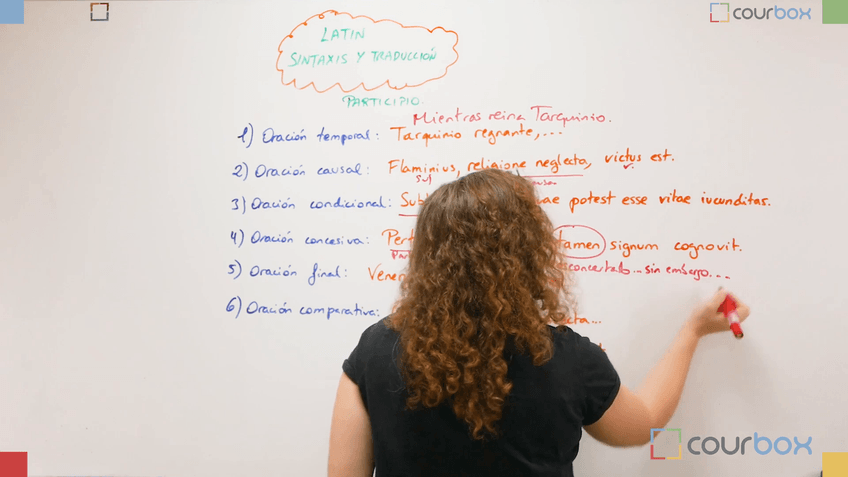 courbox
LATIN
SINTAXIS Y TRADUCCIÓN
PARTICIPIO.
Mientras reina Tarquinio.
1) Oración temporal: Tarquinio regnante,...
2) Oración causal: Flaminius, religione neglecta, victus est.
Suj
3) Oración condicional: ae potest esse vitae iucunditas.
4) Oración concesiva: tamen signum cognovit.
sin embargo...
5) Oración final:
6) Oración comparativa:
courbox